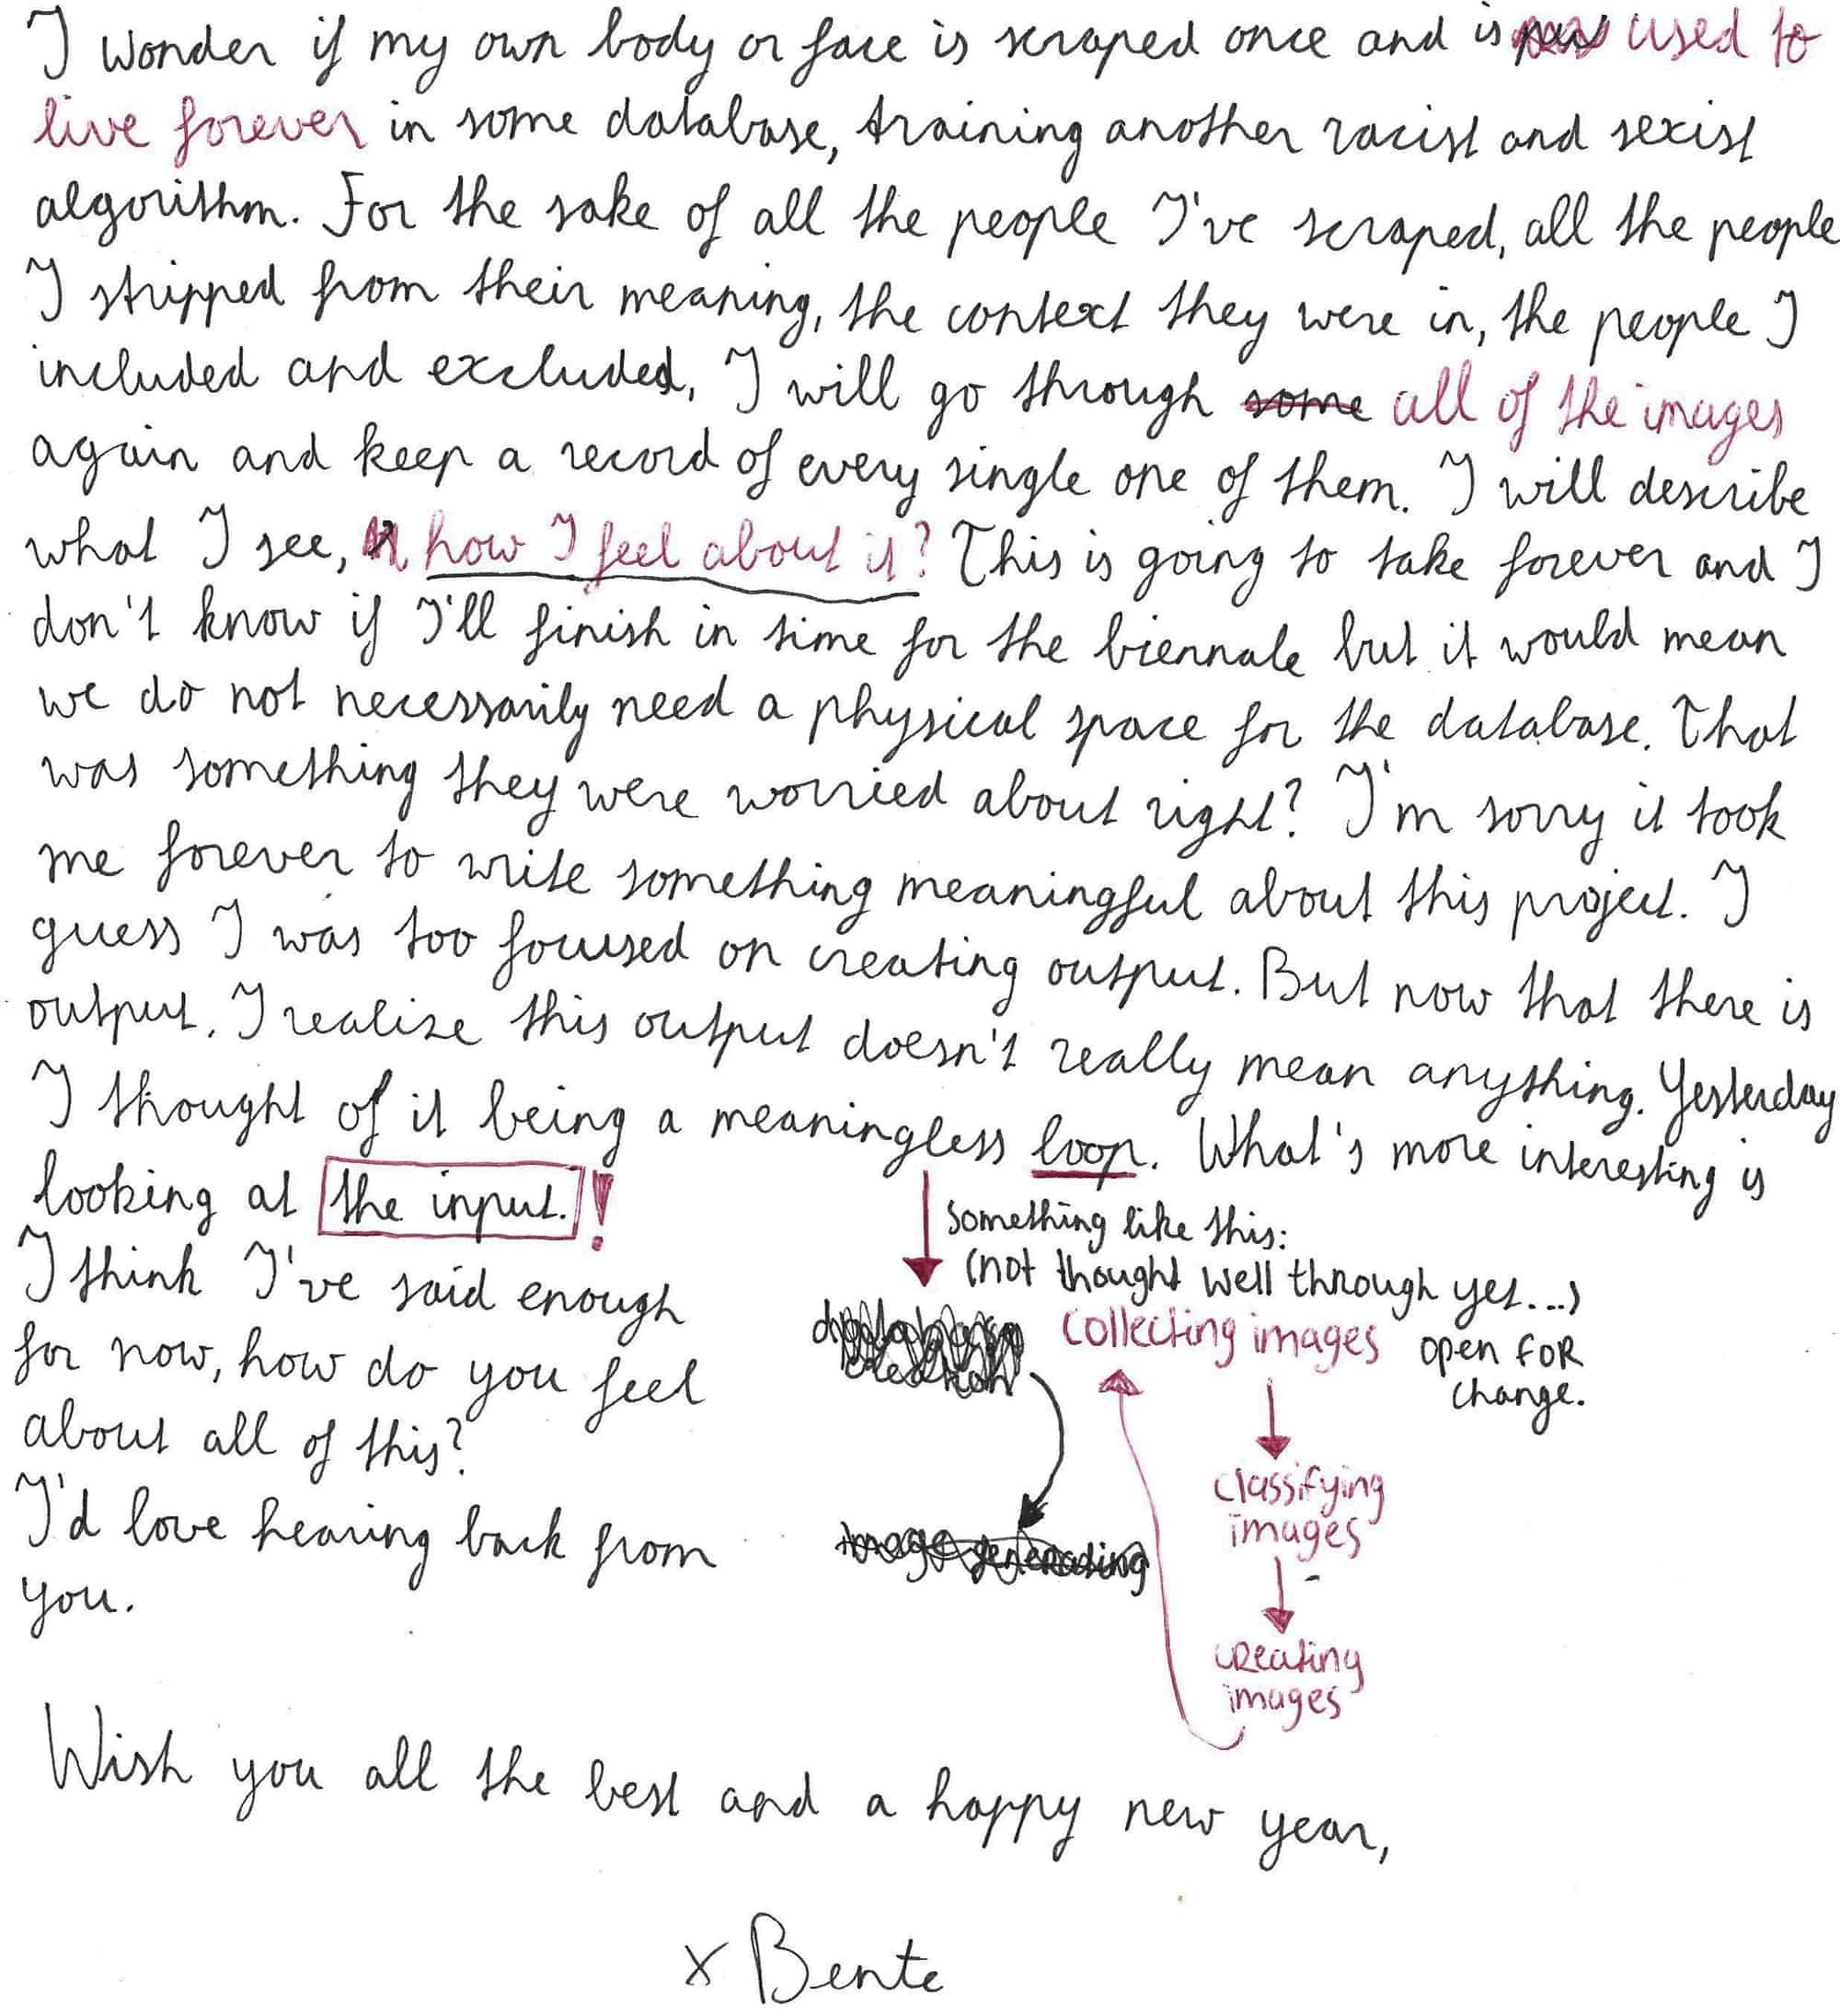 I wonder if my own body or face is scraped once and is used to
live forever in some database, training another racist and sexist
algorithm. For the sake of all the people I've scraped, all the people
I stripped from their meaning, the context they were in, the people I
included and excluded, I will go through some all of the images
again and keep a record of every single one of them. I will describe
what I see, how I feel about it? This is going to take forever and I
don't know if I'll finish in time for the biennale but it would mean
we do not necessarily need a physical space for the database. That
was something they were worried about right? I'm sorry it took
me forever to write something meaningful about this project. I
guess I was too focused on creating output. But now that there is
output, I realize this output doesn't really mean anything. Yesterday
I thought of it being a meaningless loop. What's more interesting is
looking at the input.!
I think I've said enough
for now, how do you feel
about all of this?
I'd love hearing back from
you.
something like this:
(not thought well through yet...)
collecting images
open FOR
change.
creation
classifying
images
image generating
creating
images
Wish you all the best and a happy new year,
x Bente